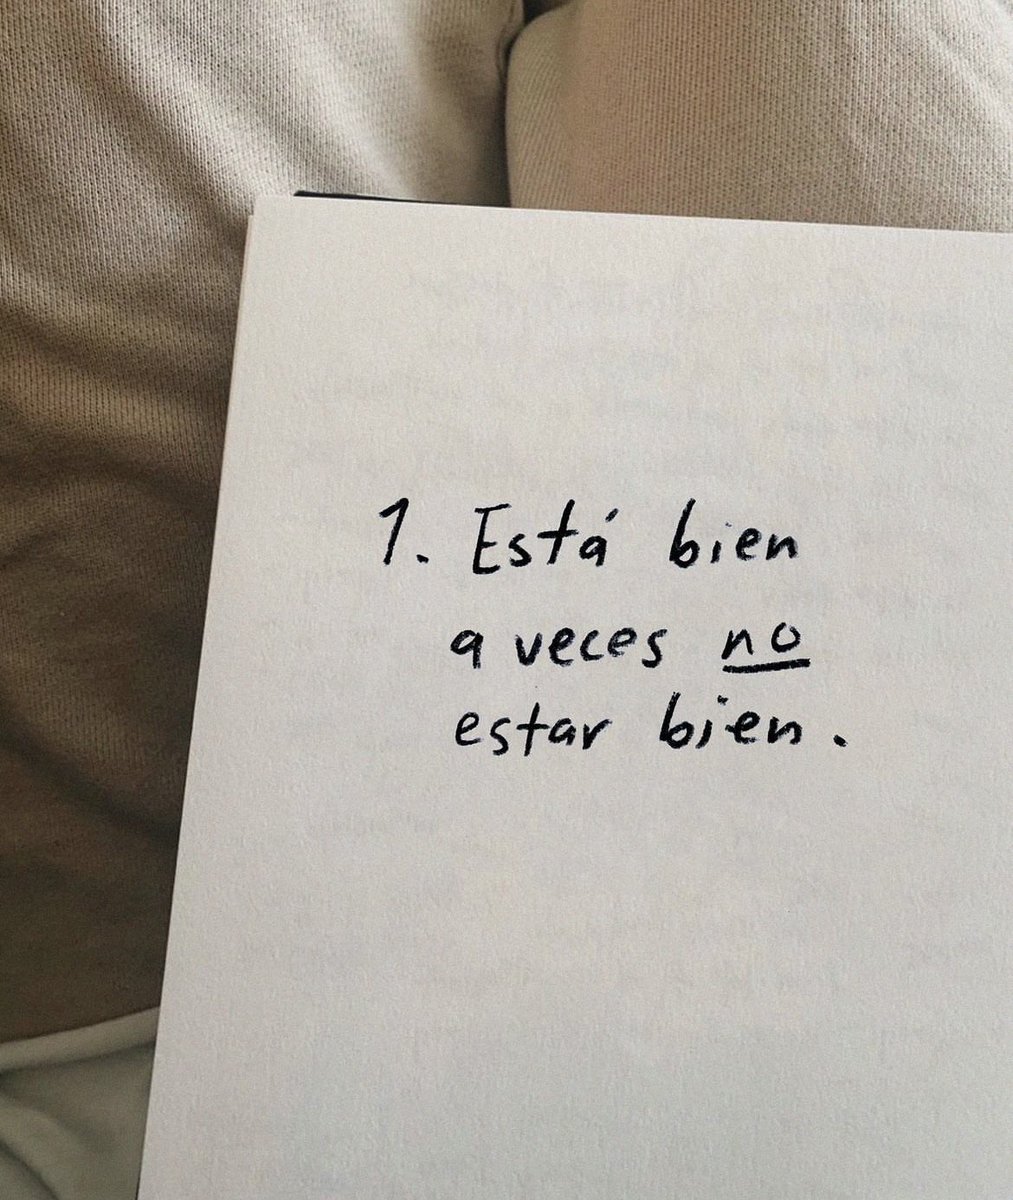 1. Está bien
a veces no
estar bien.